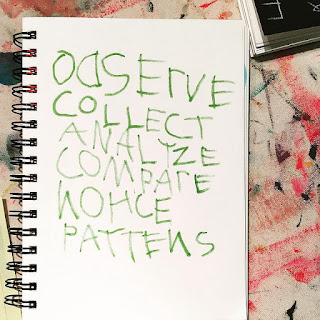 OBSERVE
COLLECT
ANALYZE
COMPARE
NOTICE
PATTERNS